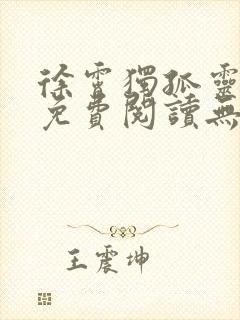 徐霄獨孤靈
免費閱讀無
王震坤